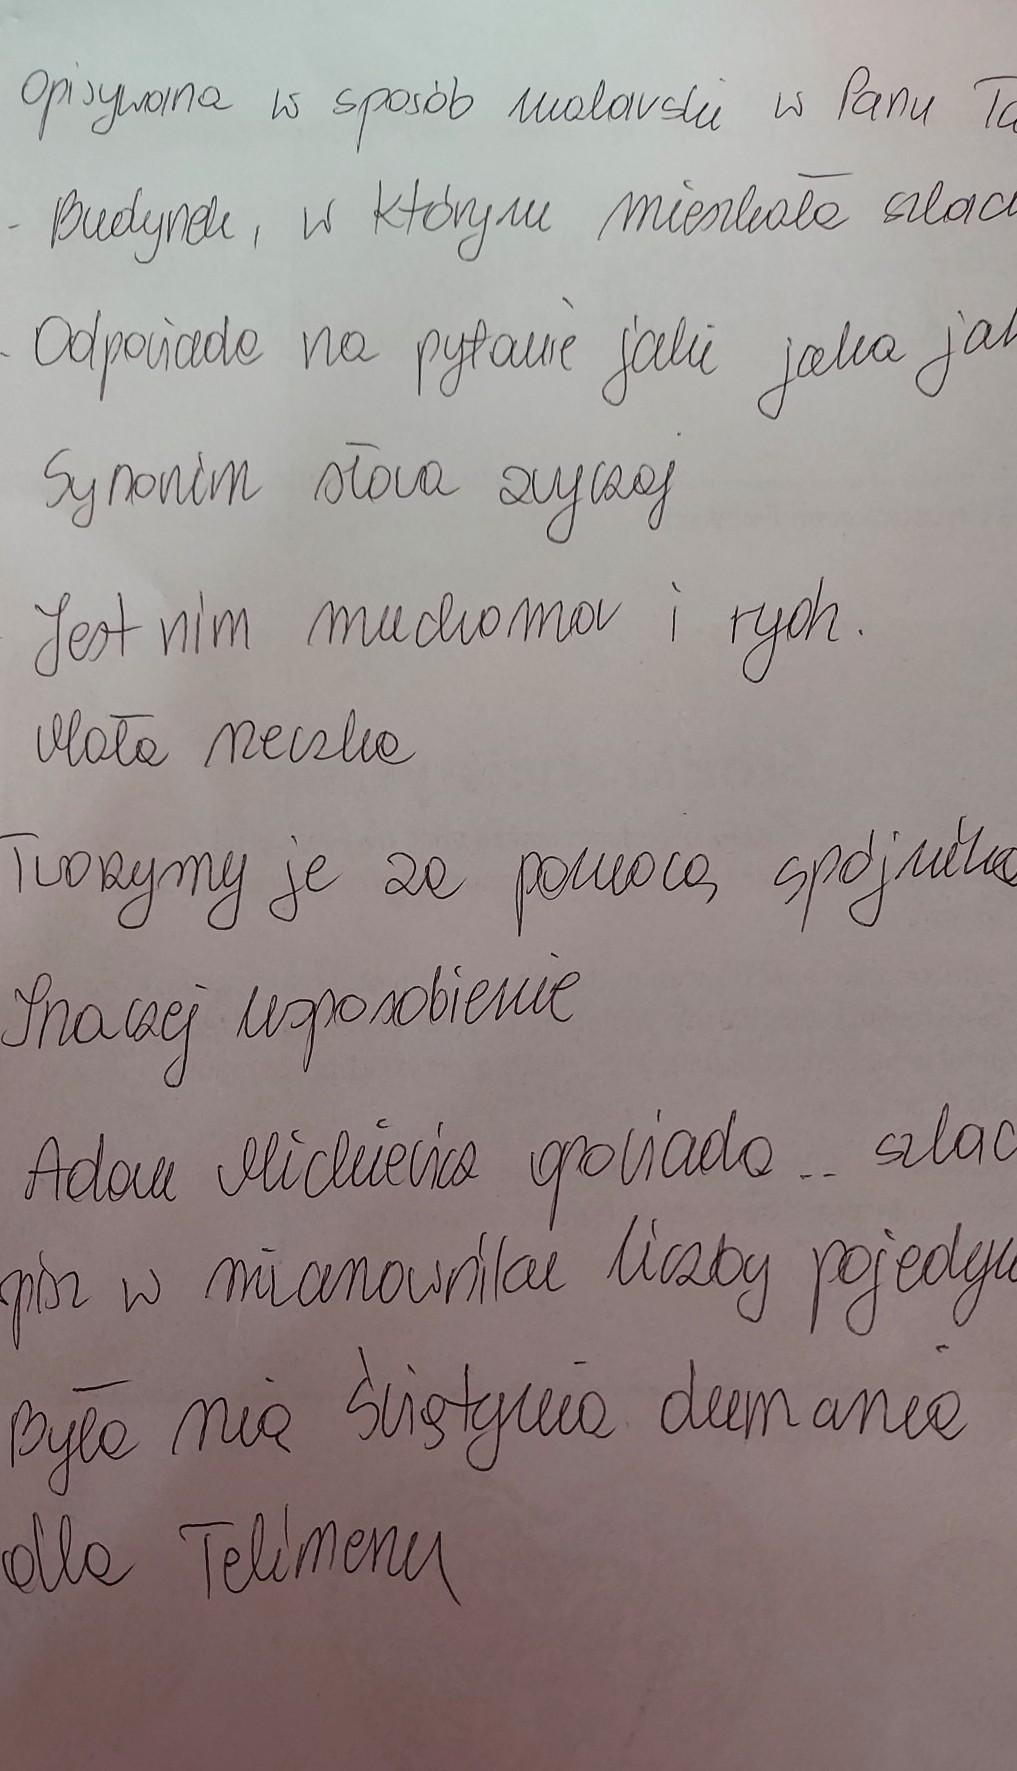 Opisywana w sposób malarski w Panu Ta
- Budynek, w którym mieszkała szlac
- Odpowiada na pytanie jaki jaka jak
Synonim słowa zwyczaj
Jest nim muchomor i rydz.
Mała rzeczka
Tworzymy je za pomocą spójnika
Inaczej usposobienie
Adam Mickiewicz opowiada .. szlac
pisz w mianowniku liczby pojedyn
Była nią świątynia dumania
dla Telimeny